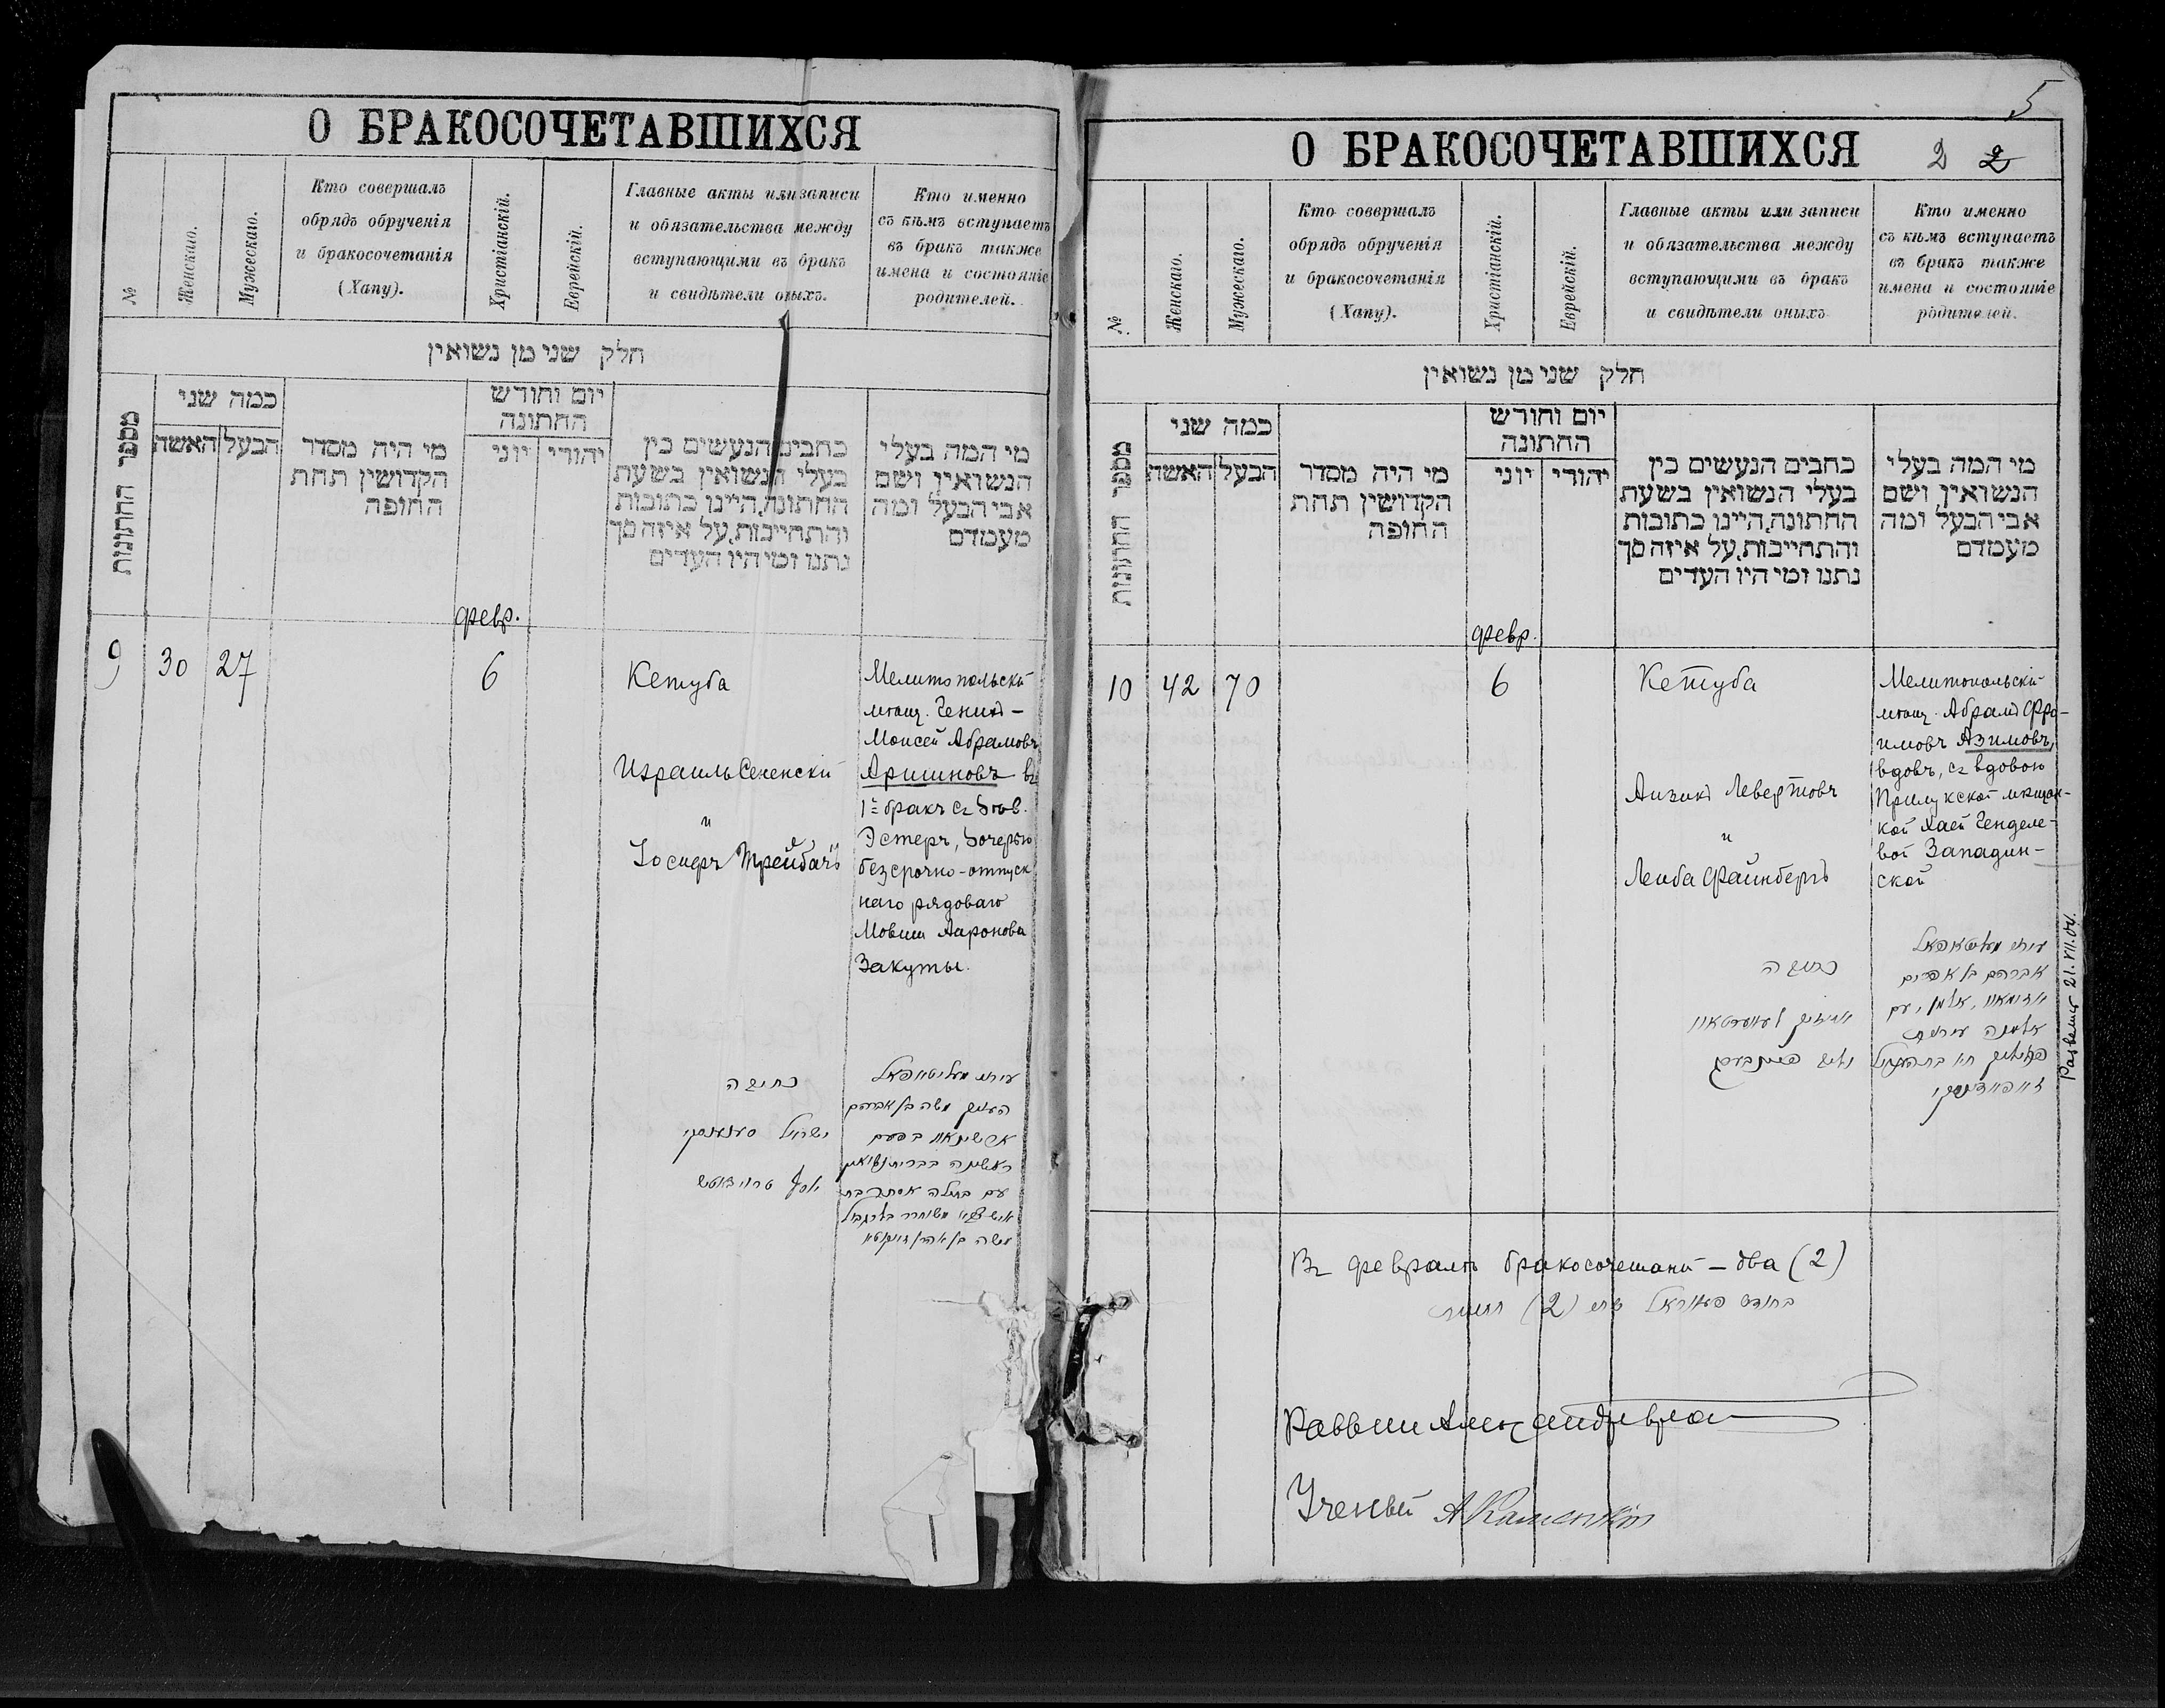 О БРАКОСОЧЕТАВШИХСЯ
№
Женскаго.
Мужескаго.
Кто совершалъ
обрядъ обрученія
и бракосочетанія
(Хапу).
Христіанскій.
Еврейскій.
Главные акты или записи
и обязательства между
вступающими въ бракъ
и свидѣтели оныхъ.
Кто именно
съ кѣмъ вступаетъ
въ бракъ также
имена и состояніе
родителей.
חלק שני מן נשואין
מספר החתונות
כמה שני
האשה
הבעל
מי היה מסדר
הקדושין תחת
החופה
יום וחודש
החתונה
יוני
יהודי
כתבים הנעשים בין
בעלי הנשואין בשעת
החתונה, היינו כתובות
והתחייבות, על איזה סך
נתנו ומי היו העדים
מי המה בעלי
הנשואין ושם
אבי הבעל ומה
מעמדם
февр.
9
30
27
6
Кетуба
Израиль Сененскій
и
Іосифъ
Мелитопольскій
мѣщ. Генихъ-
Моисей Абрамовъ
Аришновъ въ
1й бракъ съ дѣв.
Эстеръ, дочерью
безсрочно-отпуск
наго рядоваго
Мовши Ааронова
Закуты.
כתובה
ישראל
יוסף
5
О БРАКОСОЧЕТАВШИХСЯ
2 2
№
Женскаго.
Мужескаго.
Кто совершалъ
обрядъ обрученія
и бракосочетанія
(Хапу).
Христіанскій.
Еврейскій.
Главные акты или записи
и обязательства между
вступающими въ бракъ
и свидѣтели оныхъ
Кто именно
съ кѣмъ вступаетъ
въ бракъ также
имена и состояніе
родителей.
חלק שני מן נשואין
מספר החתונות
כמה שני
האשה
הבעל
מי היה מסדר
הקדושין תחת
החופה
יום וחודש
החתונה
יוני
יהודי
כתבים הנעשים בין
בעלי הנשואין בשעת
החתונה, היינו כתובות
והתחייבות, על איזה סך
נתנו ומי היו העדים
מי המה בעלי
הנשואין ושם
אבי הבעל ומה
מעמדם
февр.
10
42
70
6
Кетуба
Аизикъ Левертовъ
и
Лейба Файнбергъ
Мелитопольскій
мѣщ. Абрамъ Фро-
имовъ Азимовъ,
вдовъ, съ вдовою
Прилукской мѣщан-
кой Хаей Генделе-
вой Западин-
ской
כתובה
אברהם בן אפרים
Развелись 21.VII.04.
Въ февралѣ бракосочетаній – два (2)
Раввинъ
Ученый А Каменскій